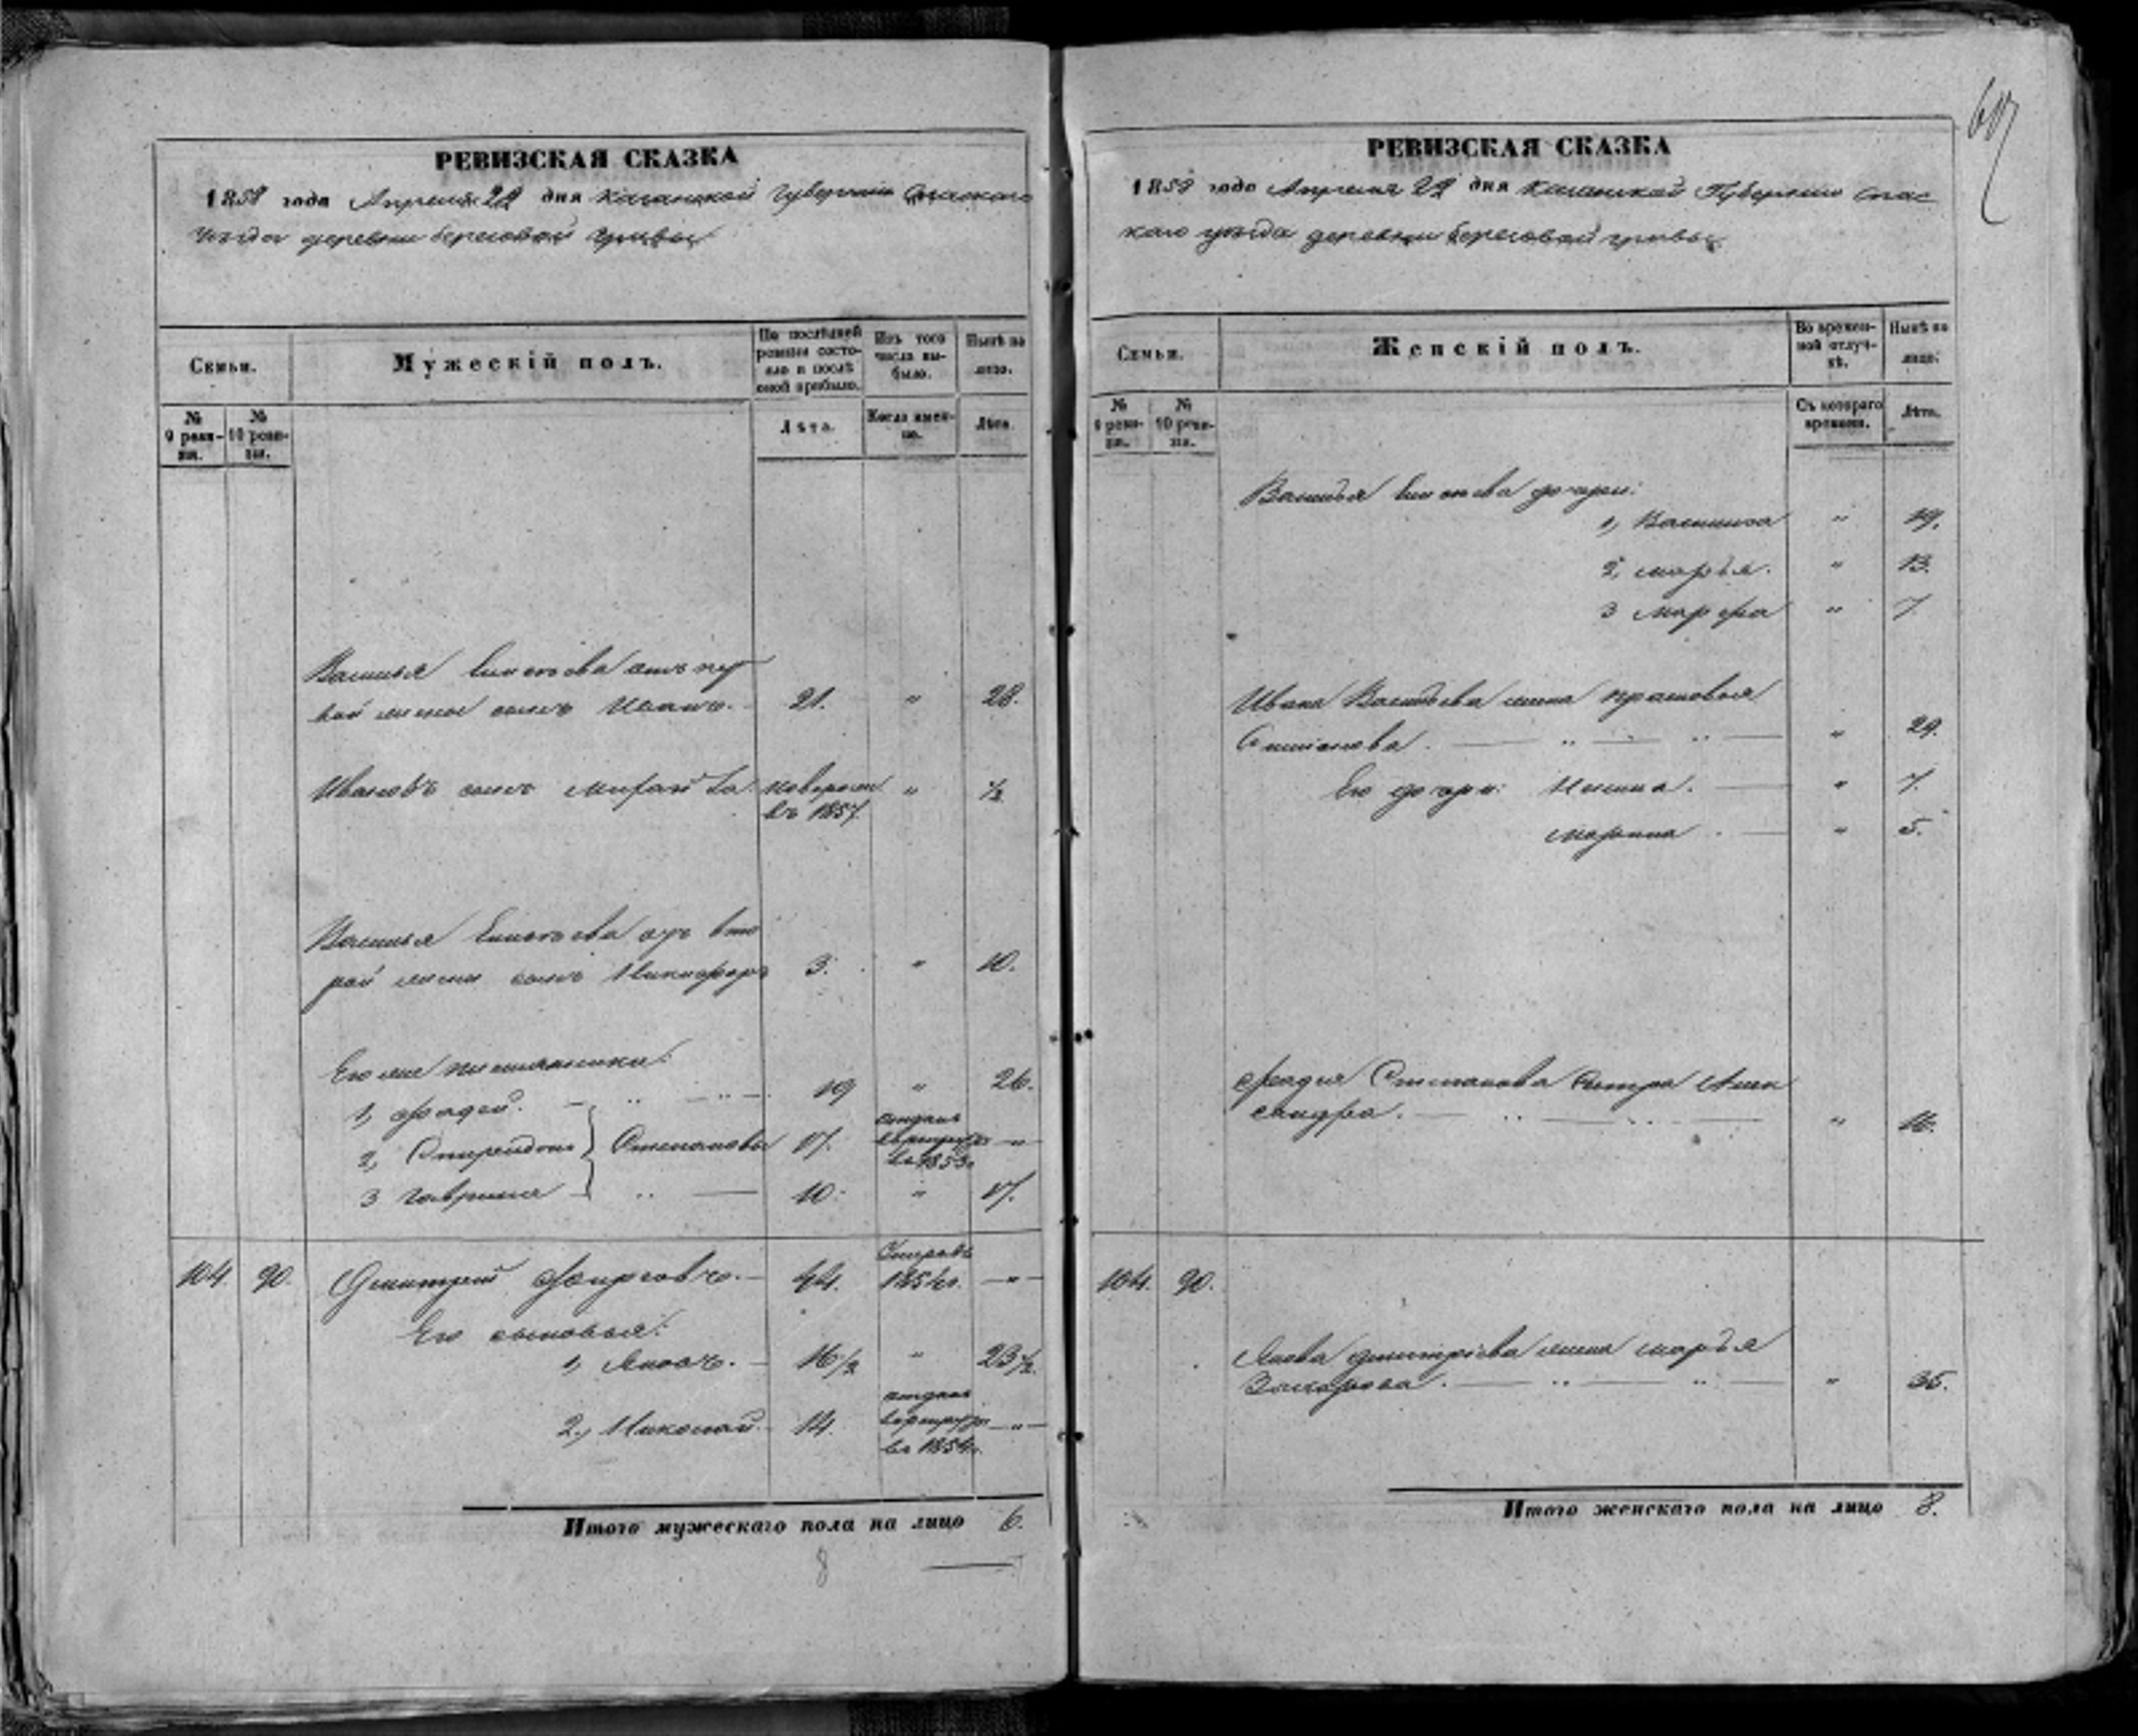 РЕВИЗСКАЯ СКАЗКА
1858 года Апреля 22 дня Казанской Губернии Спаского
уезда деревни береговой гривы
Семьи.
Мужескій полъ.
По послѣдней ревизіи состояло и послѣ оной прибыло.
Изъ того числа выбыло.
Нынѣ на лицо.
№ 9 ревизіи.
№ 10 ревизіи.
Лѣта.
Когда именно.
Лѣта.
Василья отъ пер
вой жены сынъ Иванъ. 21. " 28.
Ивановъ сынъ Михайла новорож " ½
въ 1857
Василья отъ вто
рой жены сынъ Никифоръ 3. " 10.
Его же племянники:
1, Фадей. 19 " 26.
2, Спиридонъ Степановы 17. отданъ в рекруты въ 1853 "
3 Гаврила 10. " 17.
104. 90. Дмитрей 44. Умеръ 1854 г. "
Его сыновья:
1, Яковъ. 16½ " 23½
2, Николай 14. отданъ в рекруты въ 1854 г. "
Итого мужескаго пола на лицо 6.
8
607
РЕВИЗСКАЯ СКАЗКА
1858 года Апреля 22 дня Казанской Губернии Спас
каго уѣзда деревни береговой гривы
Семьи.
Женскій полъ.
Во временной отлучкѣ.
Нынѣ на лицо.
№ 9 ревизіи.
№ 10 ревизіи.
Съ котораго времени.
Лѣта.
Василья дочери:
1, Василиса " 19.
2, марья. " 13.
3 Марфа " 7
Ивана Васильева жена прасковья
" 29.
Его дочери: " 7.
" 5.
Фадея Степанова сестра Алек
сандра. " 16.
104. 90.
Якова дмитріева жена марья
Захарова. " 35.
Итого женскаго пола на лицо 8.